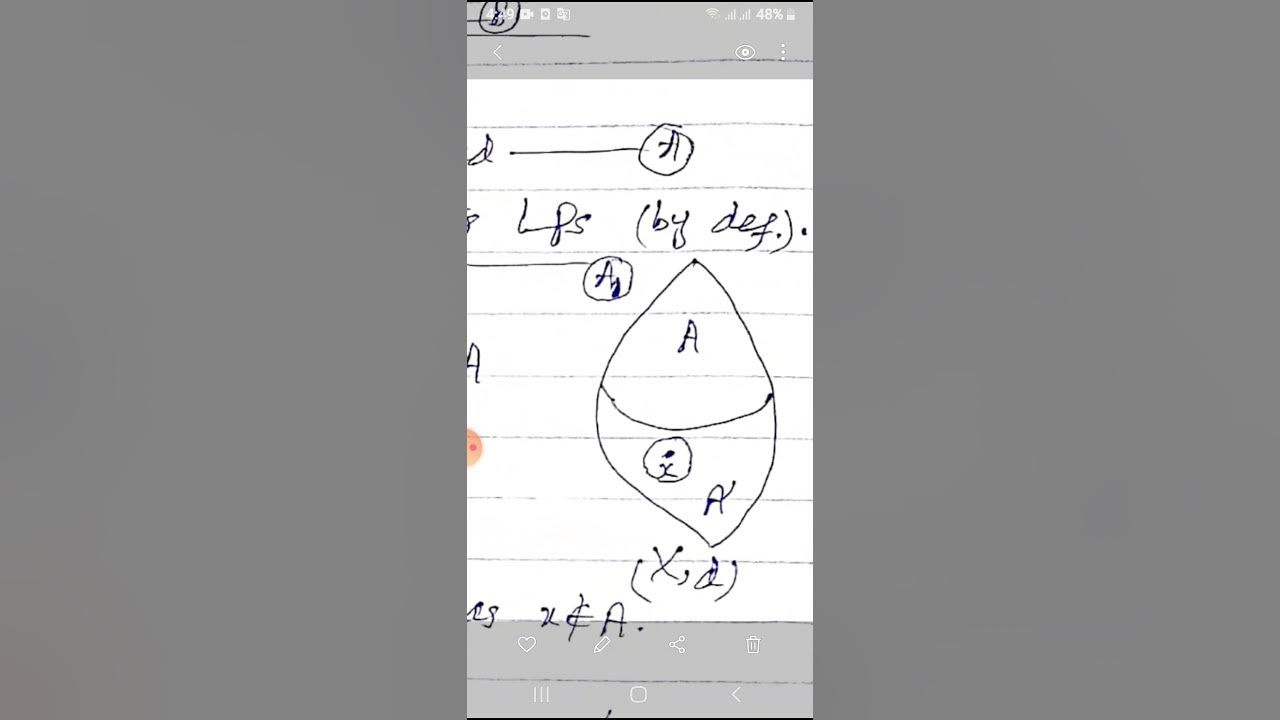 B
4:49 48%
d — A
LPs (by def.).
A₁
A
A
x
A'
(X, d)
es x∉A.